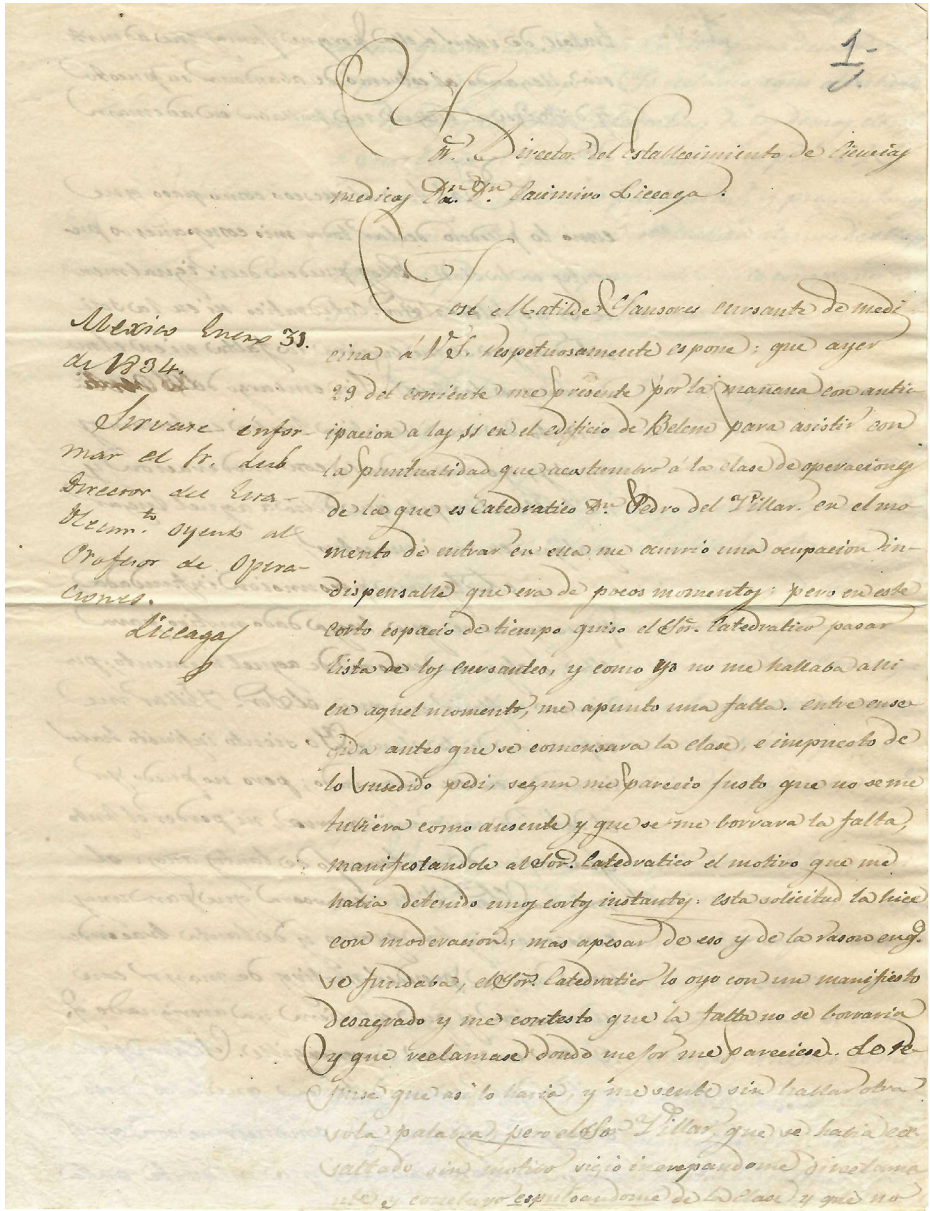 1-
Sr. Director del establecimiento de Ciencias
medicas Dn. Dn. Casimiro Liceaga.
Jose Matilde Sansores cursante de medi-
cina á V. S. respetuosamente espone: que ayer
29 del corriente me presente por la mañana con antic-
ipacion a las 11 en el edificio de Belem para asistir con
la puntualidad que acostumbro á la clase de operaciones
de la que es Catedratico Dn. Pedro del Villar. en el mo-
mento de entrar en ella me ocurrio una ocupacion in-
dispensable que era de pocos momentos; pero en este
corto espacio de tiempo quiso el Sor. Catedratico pasar
lista de los cursantes, y como yo no me hallaba alli
en aquel momento, me apunto una falta. entre ense-
guida antes que se comensara la clase, e impuesto de
lo susedido pedi, segun me parecio justo que no se me
tubiera como ausente y que se me borrara la falta,
manifestandole al Sor. Catedratico el motivo que me
habia detenido unos cortos instantes: esta solicitud la hice
con moderacion; mas apesar de eso y de la rason en q.
se fundaba, el Sor. Catedratico lo oyo con un manifiesto
desagrado y me contesto que la falta no se borraria
y que reclamase donde mejor me pareciese. Le re-
puse que asi lo haria, y me sente sin hablar otra
sola palabra, pero el Sor Villar, que se habia ec-
saltado sin motivo sigio increpandome
y concluyo espulsandome de la clase y que no
Mexico Enero 31.
de 1834.
Sirvase infor-
mar el Sr. sub
Director del Esta-
blecim.to oyendo al
Profesor de Opera-
ciones.
Liceaga